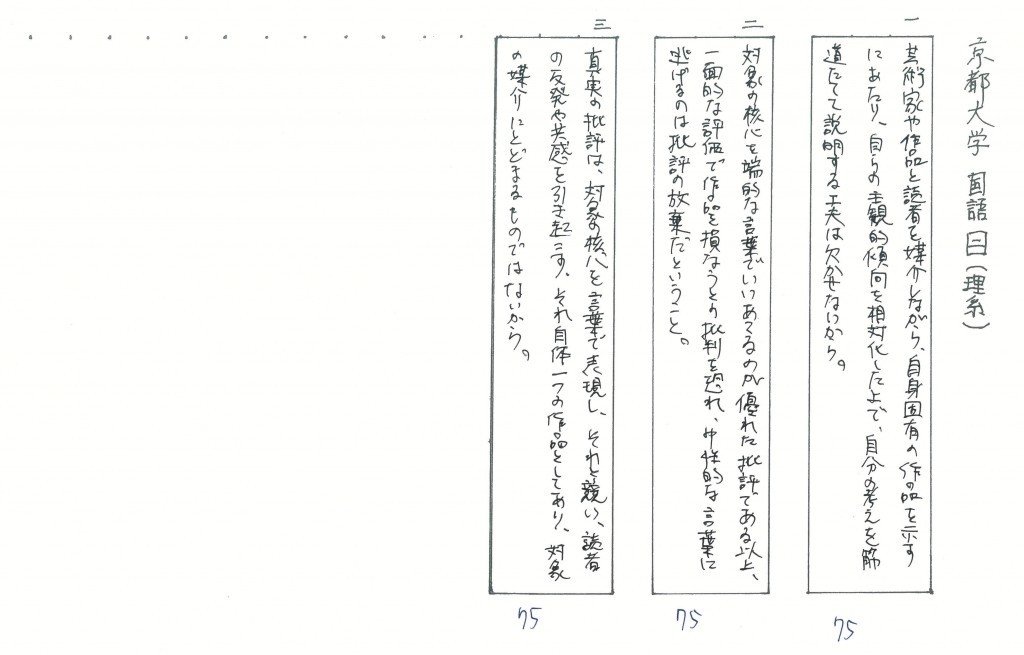 京都大学 国語 二(理系)
一
芸術家や作品と読者を媒介しながら、自身固有の作品を示す
にあたり、自らの主観的傾向を相対化した上で、自分の考えを筋
道だてて説明する工夫は欠かせないから。
75
二
対象の核心を端的な言葉でいいあてるのが優れた批評である以上、
一面的な評価で作品を損なうとの批判を恐れ、中性的な言葉に
逃げるのは批評の放棄だということ。
75
三
真実の批評は、対象の核心を言葉で表現し、それと競い、読者
の反発や共感を引き起こす、それ自体一つの作品としてあり、対象
の媒介にとどまるものではないから。
75